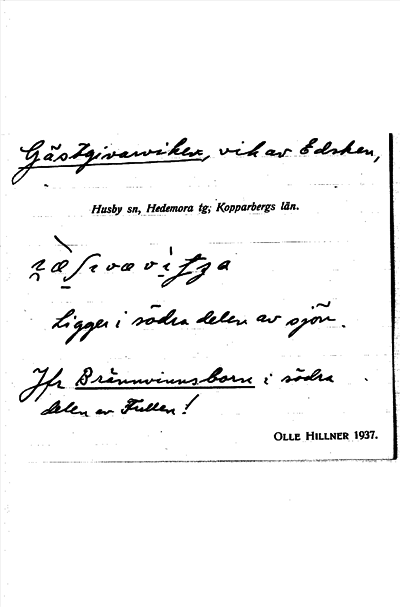 Gästgivarviken, vik av Edsken,
Husby sn, Hedemora tg; Kopparbergs län.
Ligger i södra delen av sjön.
Jfr Brännvinnsborn i södra
delen av Fullen!
OLLE HILLNER 1937.